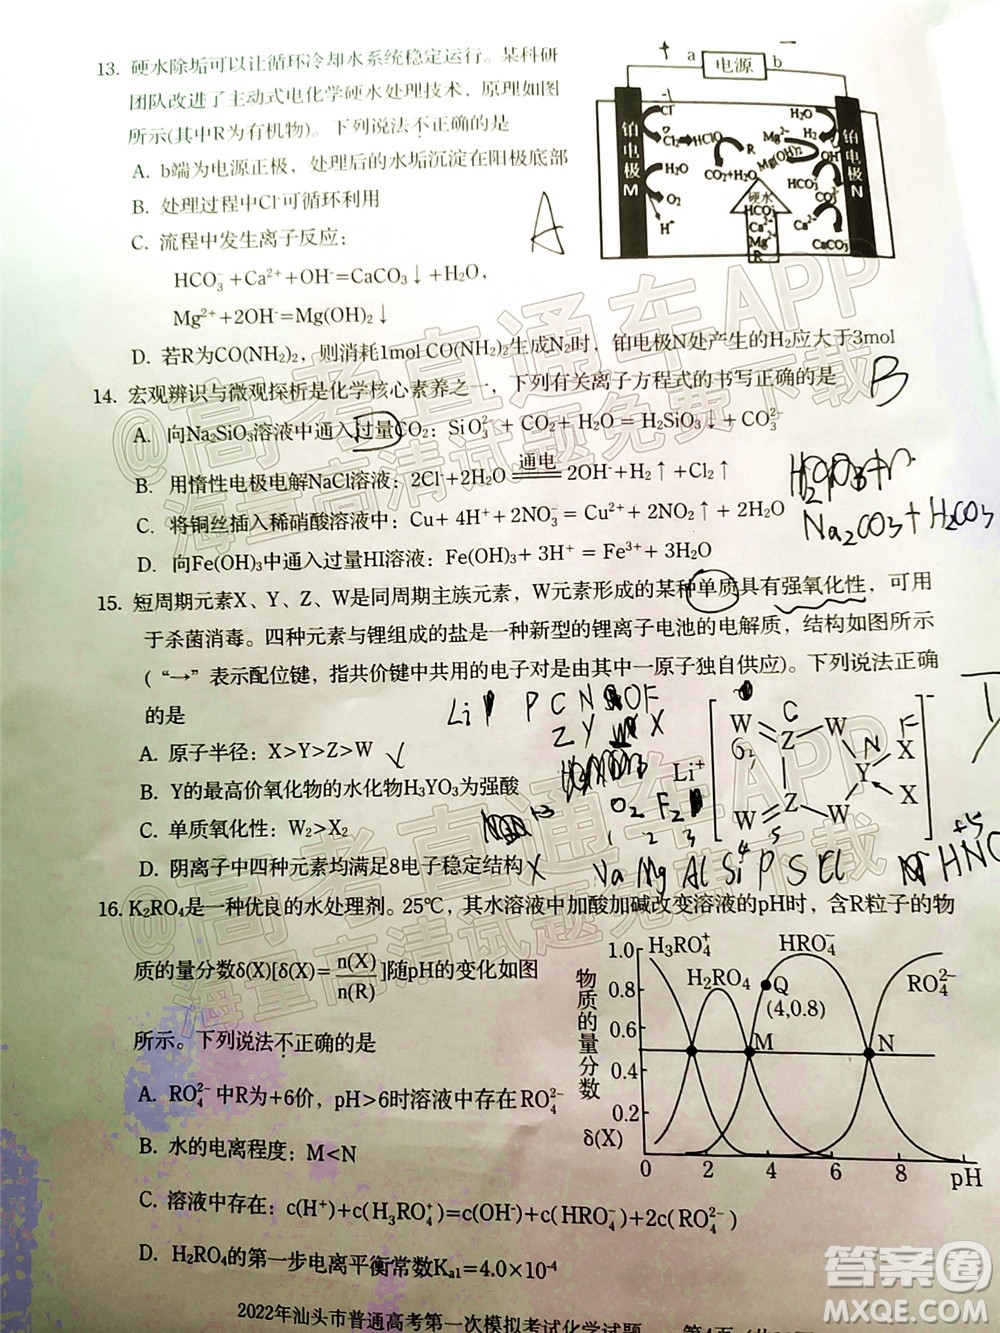 13. 硬水除垢可以让循环冷却水系统稳定运行。某科研
团队改进了主动式电化学硬水处理技术，原理如图
所示(其中R为有机物)。下列说法不正确的是
A. b端为电源正极，处理后的水垢沉淀在阳极底部
B. 处理过程中Cl⁻可循环利用
C. 流程中发生离子反应：
HCO₃⁻+Ca²⁺+OH⁻=CaCO₃↓+H₂O，
Mg²⁺+2OH⁻=Mg(OH)₂↓
D. 若R为CO(NH₂)₂，则消耗1mol CO(NH₂)₂生成N₂时，铂电极N处产生的H₂应大于3mol
+ a 电源 b −
铂电极M
Cl⁻
Cl₂ HClO
R
CO₂+H₂O
H₂O
O₂
H⁺
硬水
HCO₃⁻
Ca²⁺
Mg²⁺
R
Mg²⁺
Mg(OH)₂
H₂O
H₂
OH⁻
HCO₃⁻
CO₃²⁻
Ca²⁺
CaCO₃
铂电极N
A
14. 宏观辨识与微观探析是化学核心素养之一，下列有关离子方程式的书写正确的是
B
A. 向Na₂SiO₃溶液中通入过量CO₂：SiO₃²⁻+CO₂+H₂O=H₂SiO₃↓+CO₃²⁻
B. 用惰性电极电解NaCl溶液：2Cl⁻+2H₂O 通电 2OH⁻+H₂↑+Cl₂↑
C. 将铜丝插入稀硝酸溶液中：Cu+4H⁺+2NO₃⁻=Cu²⁺+2NO₂↑+2H₂O
Na₂CO₃+H₂CO₃
D. 向Fe(OH)₃中通入过量HI溶液：Fe(OH)₃+3H⁺=Fe³⁺+3H₂O
15. 短周期元素X、Y、Z、W是同周期主族元素，W元素形成的某种单质具有强氧化性，可用
于杀菌消毒。四种元素与锂组成的盐是一种新型的锂离子电池的电解质，结构如图所示
(“→”表示配位键，指共价键中共用的电子对是由其中一原子独自供应)。下列说法正确
的是
A. 原子半径：X>Y>Z>W
B. Y的最高价氧化物的水化物H₃YO₃为强酸
C. 单质氧化性：W₂>X₂
D. 阴离子中四种元素均满足8电子稳定结构
C N O F
Z Y X
O₂ F₂
1 2 3 4 5
Na Mg Al Si P S Cl
Li⁺
W Z W X
Y
W Z W X
−
16. K₂RO₄是一种优良的水处理剂。25℃，其水溶液中加酸加碱改变溶液的pH时，含R粒子的物
质的量分数δ(X)[δ(X)=n(X)/n(R)]随pH的变化如图
所示。下列说法不正确的是
A. RO₄²⁻中R为+6价，pH>6时溶液中存在RO₄²⁻
B. 水的电离程度：M<N
C. 溶液中存在：c(H⁺)+c(H₃RO₄⁺)=c(OH⁻)+c(HRO₄⁻)+2c(RO₄²⁻)
D. H₂RO₄的第一步电离平衡常数Ka1=4.0×10⁻⁴
物质的量分数
δ(X)
1.0
0.8
0.6
0.4
0.2
0 2 4 6 8 pH
H₃RO₄⁺
H₂RO₄
HRO₄⁻
RO₄²⁻
Q
(4,0.8)
M
N
2022年汕头市普通高考第一次模拟考试化学试题
第4页
@高考直通车APP
海量高清试题免费下载
@高考直通车APP
海量高清试题免费下载
答案圈
MXQE.COM